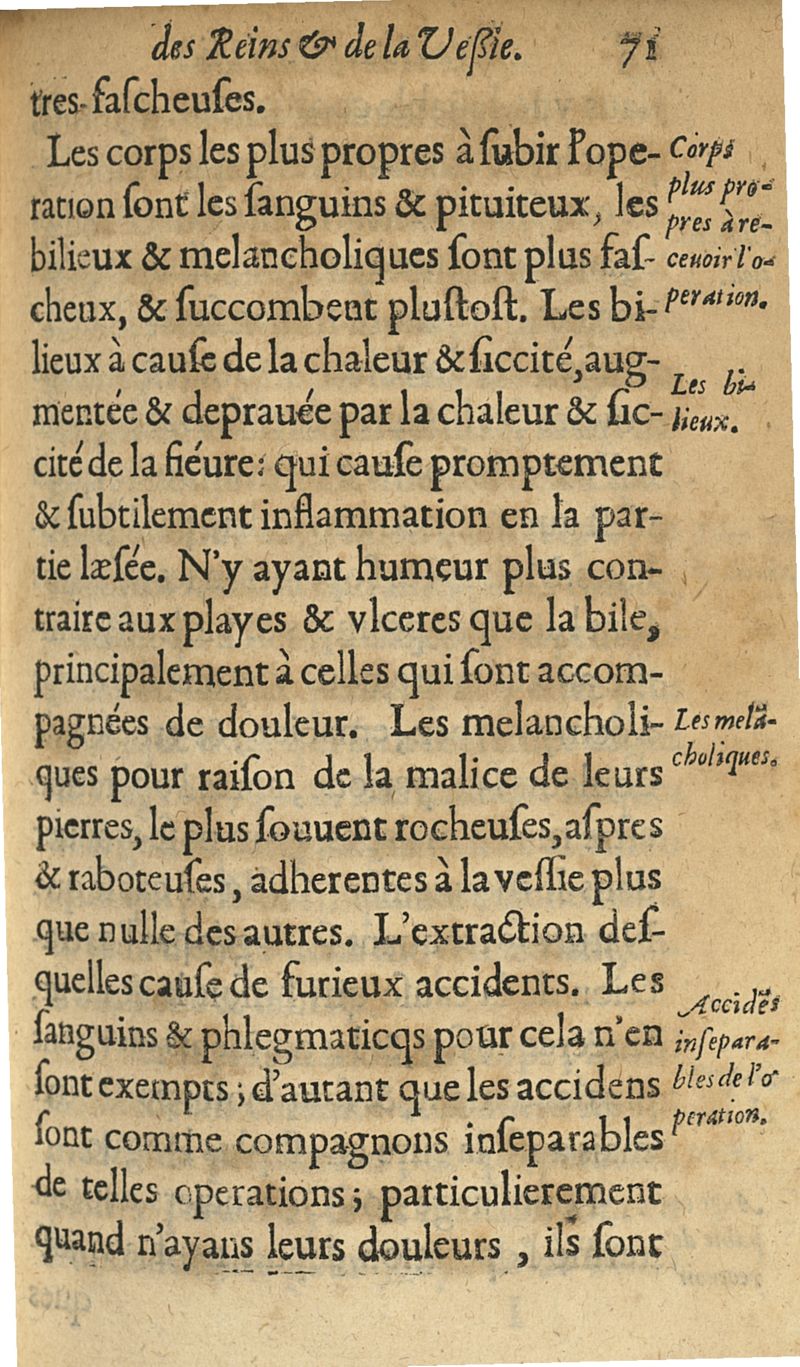 des Reins & de la Veßie. 71
tres-faſcheuſes.
Les corps les plus propres à ſubir l'ope-
ration ſont les ſanguins & pituiteux, les
bilieux & melancholiques ſont plus faſ-
cheux, & ſuccombent pluſtoſt. Les bi-
lieux à cauſe de la chaleur & ſiccité, aug-
mentée & deprauée par la chaleur & ſic-
cité de la fiéure: qui cauſe promptement
& ſubtilement inflammation en la par-
tie læſée. N'y ayant humeur plus con-
traire aux playes & vlceres que la bile,
principalement à celles qui ſont accom-
pagnées de douleur. Les melancholi-
ques pour raiſon de la malice de leurs
pierres, le plus ſouuent rocheuſes, aſpres
& raboteuſes, adherentes à la veſſie plus
que nulle des autres. L'extraction deſ-
quelles cauſe de furieux accidents. Les
ſanguins & phlegmaticqs pour cela n'en
ſont exempts; d'autant que les accidens
ſont comme compagnons inſeparables
de telles operations; particulierement
quand n'ayans leurs douleurs, ils ſont
Corps
plus pro-
pres à re-
ceuoir l'o-
peration.
Les bi-
lieux.
Les melã-
choliques.
Accidẽs
inſepara-
bles de l'o
peration.